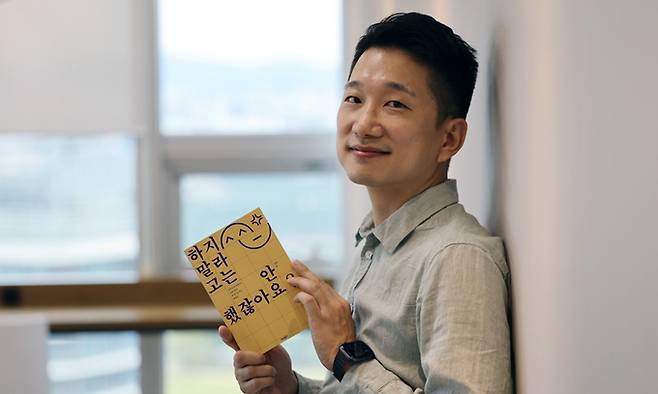 하지
말라
고는
안
했잖아요